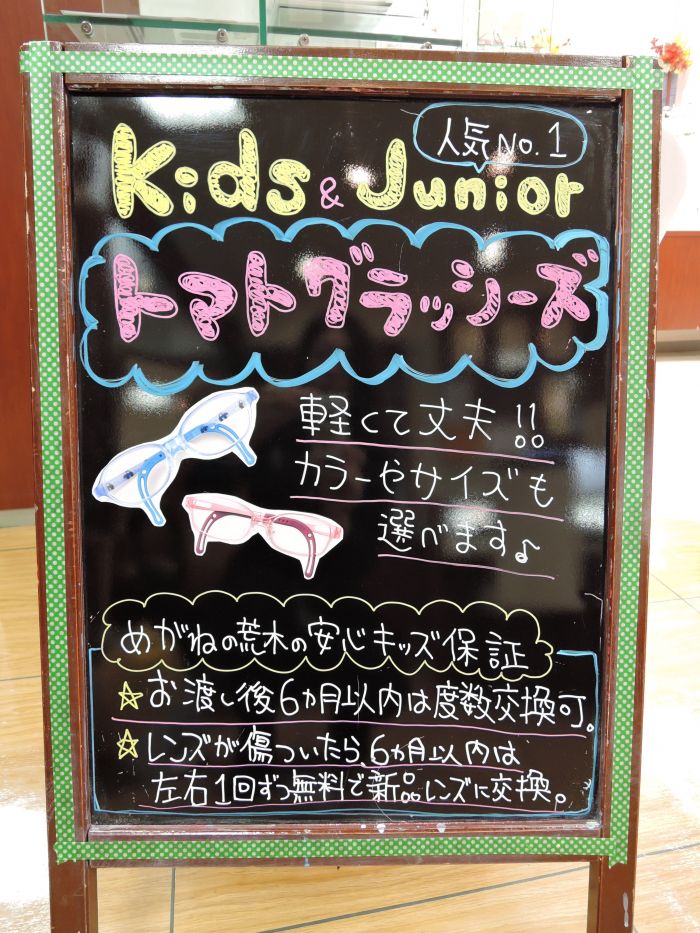 人気No.1
Kids & Junior
トマトグラッシーズ
軽くて丈夫!!
カラーやサイズも
選べます♪
めがねの荒木の安心キッズ保証
☆お渡し後6ヵ月以内は度数交換可。
☆レンズが傷ついたら、6ヵ月以内は
左右1回ずつ無料で新品レンズに交換。